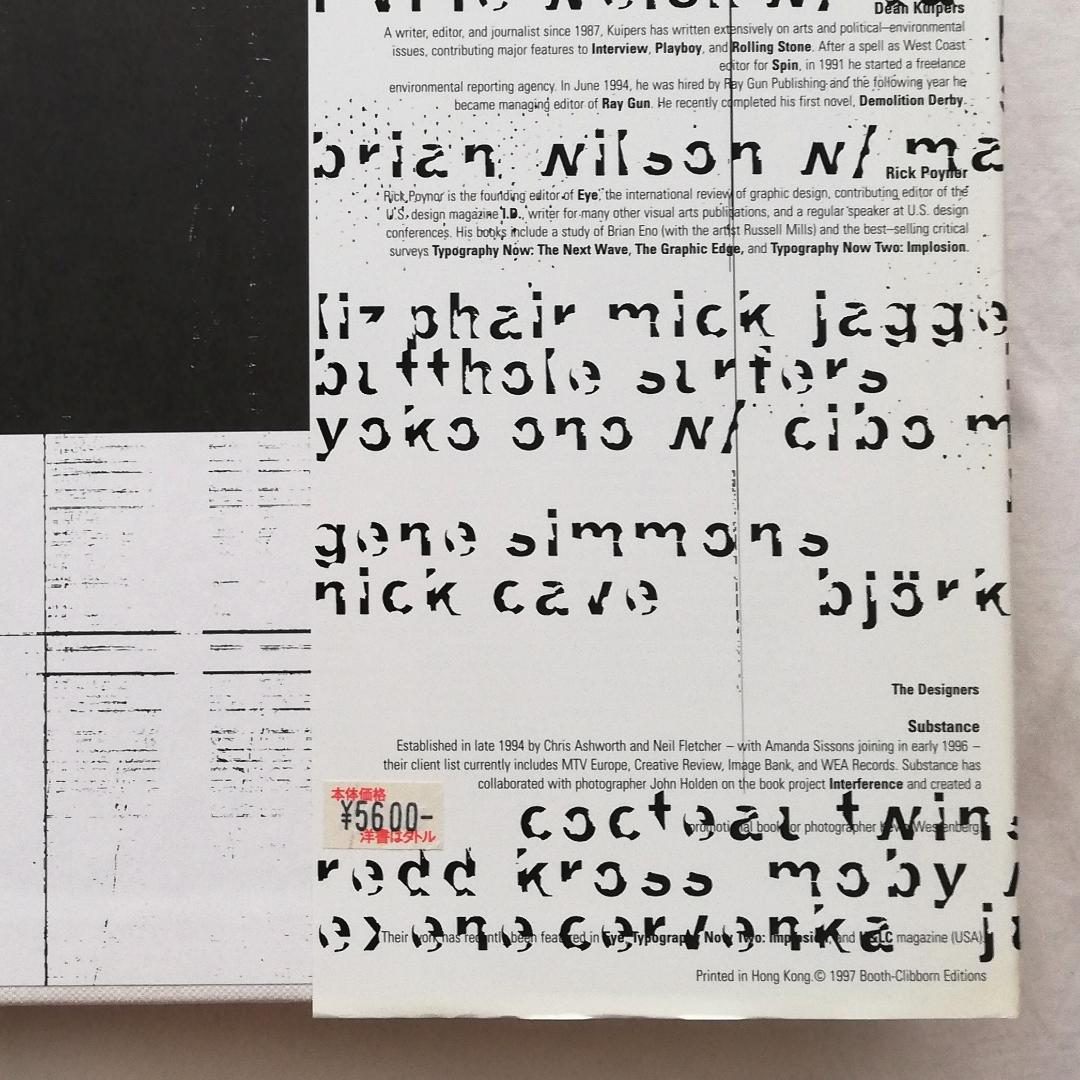 Dean Kuipers
A writer, editor, and journalist since 1987, Kuipers has written extensively on arts and political–environmental
issues, contributing major features to Interview, Playboy, and Rolling Stone. After a spell as West Coast
editor for Spin, in 1991 he started a freelance
environmental reporting agency. In June 1994, he was hired by Ray Gun Publishing and the following year he
became managing editor of Ray Gun. He recently completed his first novel, Demolition Derby.
brian wilson w/ ma
Rick Poynor
Rick Poynor is the founding editor of Eye, the international review of graphic design, contributing editor of the
U.S. design magazine I.D., writer for many other visual arts publications, and a regular speaker at U.S. design
conferences. His books include a study of Brian Eno (with the artist Russell Mills) and the best–selling critical
surveys Typography Now: The Next Wave, The Graphic Edge, and Typography Now Two: Implosion.
liz phair mick jagge
butthole surfers
yoko ono w/ cibo m
gene simmons
nick cave björk
The Designers
Substance
Established in late 1994 by Chris Ashworth and Neil Fletcher – with Amanda Sissons joining in early 1996 –
their client list currently includes MTV Europe, Creative Review, Image Bank, and WEA Records. Substance has
collaborated with photographer John Holden on the book project Interference and created a
本体価格
¥5600-
洋書はタトル
cocteau twins
promotional book for photographer Kevin Westenberg.
redd kross moby
exene cervenka j
Their work has recently been featured in Eye, Typography Now Two: Implosion, and U&LC magazine (USA).
Printed in Hong Kong.© 1997 Booth-Clibborn Editions